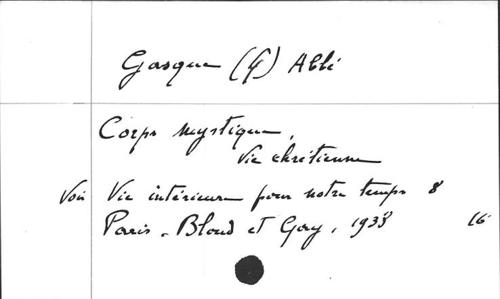 Gasque (G) Abbé
Corps mystique,
Vie chrétienne
Voir Vie intérieure pour notre temps 8°
Paris. Bloud et Gay, 1933 16